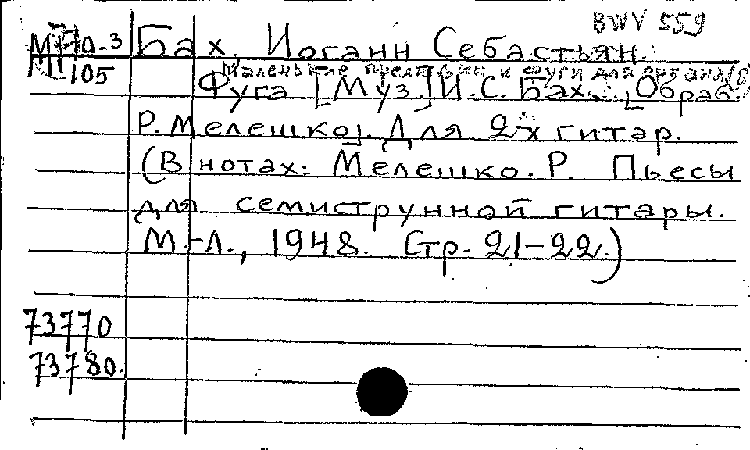 BWV 559
Бах, Иоганн Себастьян.
105
Маленькие прелюдии и фуги для органа
Фуга [Муз.] И.С. Бах. [Обраб.
Р. Мелешко]. Для 2-х гитар.
(В нотах: Мелешко. Р. Пьесы
для семиструнной гитары.
М.-Л., 1948. Стр. 21-22.)
73770
73780.